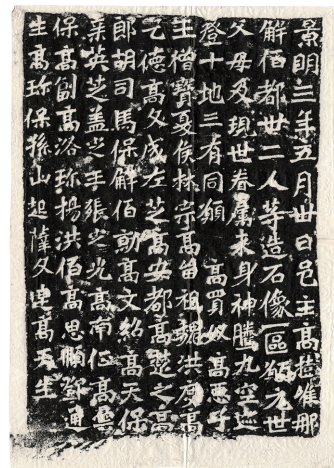 景明三年五月卅日邑主高樹唯那
解佰都卅二人等造石像一區願元世
父母及現世眷屬來身神騰九空迹
登十地三有同願 高買奴高惡子
王僧寶夏侯林宗高留祖魏洪度高
乞德高文成左芝高安都高楚之高
郎胡司馬保解佰勍高文紹高天保
孫英芝蓋之王張之光高南征高曇
保高副高洛珎楊洪佰高思順鄧通
生高珎保孫山起薛文達高天生